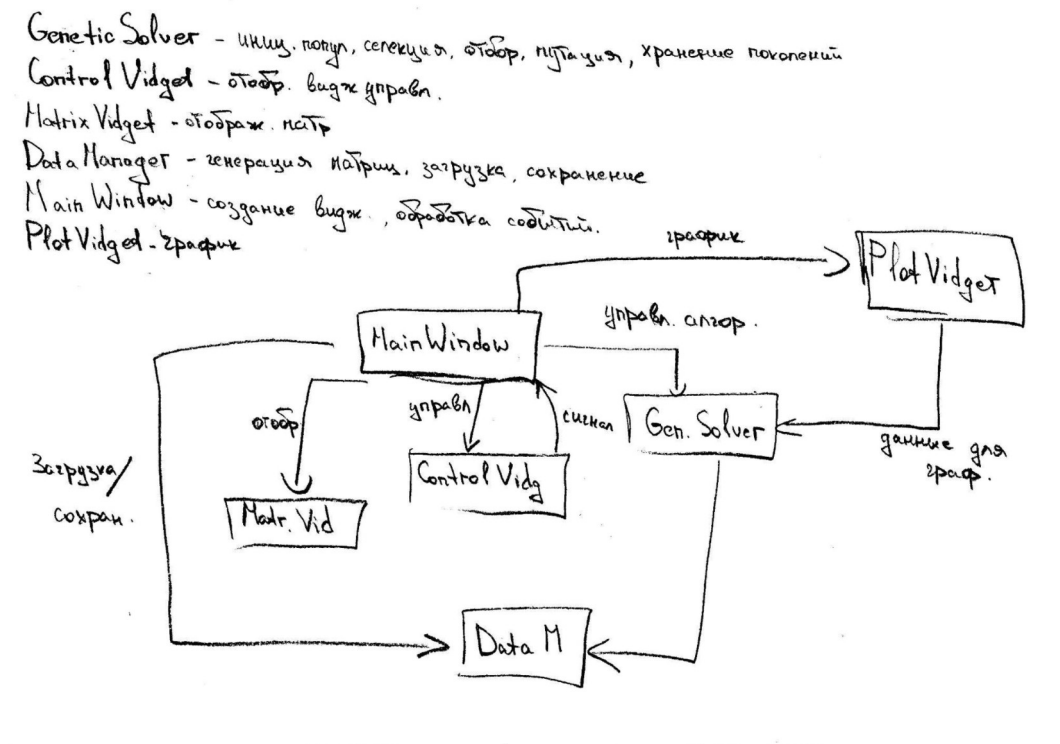 Genetic Solver - иниц. попул, селекция, отбор, мутация, хранение поколений
Control Vidget - отобр. видж управл.
Matrix Vidget - отображ. матр
Data Manager - генерация матриц, загрузка, сохранение
Main Window - создание видж., обработка событий.
Plot Vidged - график
график
Plot Vidget
управл. алгор.
Main Window
отобр
управл
сигнал
Gen. Solver
данные для
граф.
Загрузка/
сохран.
Control Vidg
Matr. Vid
Data M